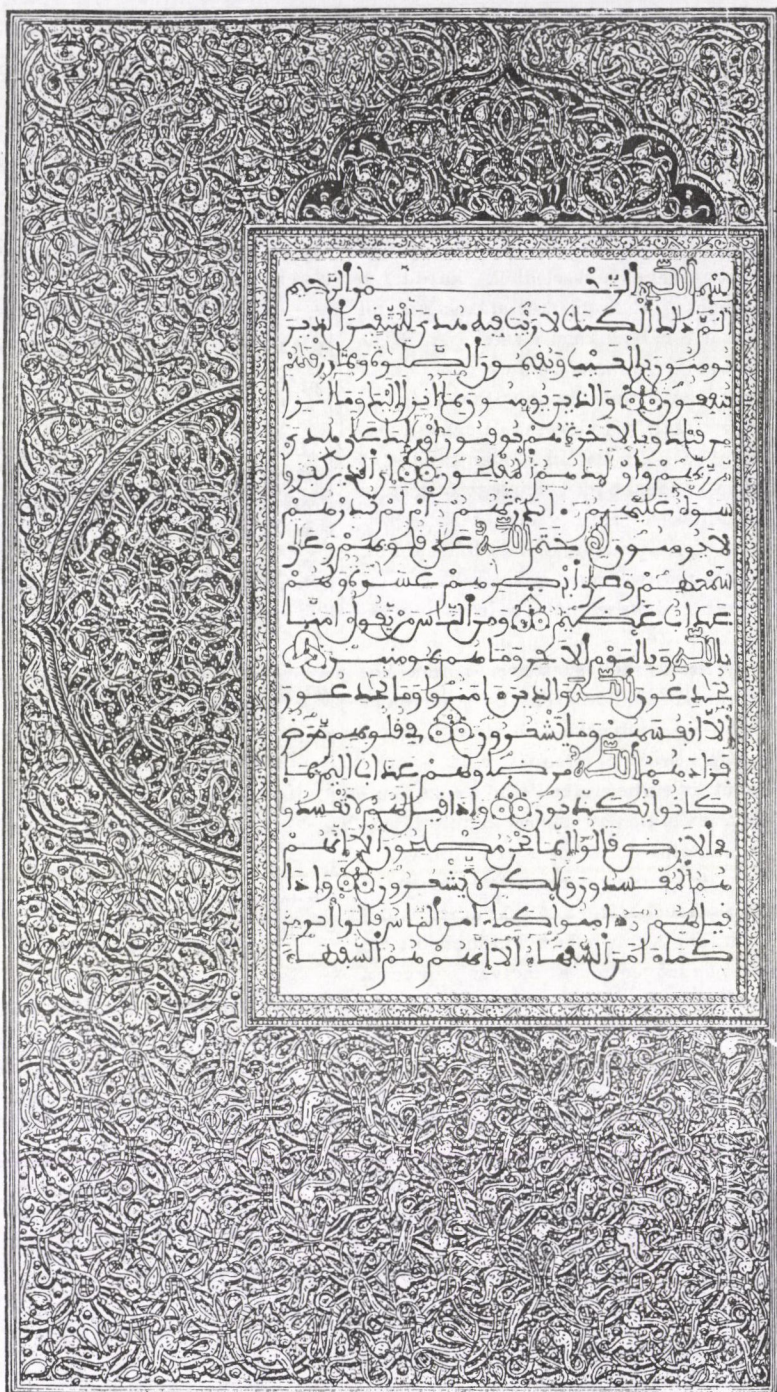 بسم الله الرحمن الرحيم
الم ذلك الكتب لا ريب فيه هدى للمتقين الذين
يومنون بالغيب ويقيمون الصلوة ومما رزقنهم
ينفقون والذين يومنون بما انزل اليك وما انزل
من قبلك وبالاخرة هم يوقنون اولئك على هدى
من ربهم واولئك هم المفلحون ان الذين كفروا
سواء عليهم ءانذرتهم ام لم تنذرهم
لا يومنون ختم الله على قلوبهم وعلى
سمعهم وعلى ابصرهم غشوة ولهم
عذاب عظيم ومن الناس من يقول امنا
بالله وباليوم الاخر وما هم بمومنين
يخدعون الله والذين ءامنوا وما يخدعون
الا انفسهم وما يشعرون في قلوبهم مرض
فزادهم الله مرضا ولهم عذاب اليم بما
كانوا يكذبون واذا قيل لهم لا تفسدوا
في الارض قالوا انما نحن مصلحون الا انهم
هم المفسدون ولكن لا يشعرون واذا
قيل لهم ءامنوا كما ءامن الناس قالوا انومن
كما ءامن السفهاء الا انهم هم السفهاء